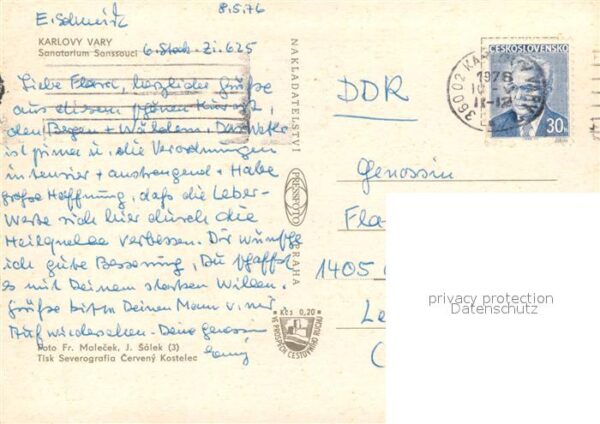 E. Schmidt 8.5.76
KARLOVY VARY
Sanatorium Sanssouci
6. Stck - Zi. 625
Liebe Flora, herzliche Grüße
aus diesem schönen Kurort,
den Bergen + Wäldern. Das Wetter
ist prima u. die Verordnungen
intensiv + anstrengend + Habe
große Hoffnung, daß die Leber-
werte sich hier durch die
Heilquelle verbessern. Dir wünsche
ich gute Besserung, Du schaffst
es mit Deinem starken Willen.
Grüße bitte Deinen Mann v. mir
Auf Wiedersehen - Deine Genossin
Foto Fr. Maleček, J. Šálek (3)
Tisk Severografia Červený Kostelec
NAKLADATELSTVÍ
PRESSFOTO
PRAHA
Kčs 0,20
VE PROSPĚCH CESTOVNÍHO RUCHU
ČESKOSLOVENSKO
30 h
360 02 KARLOVY VARY
1976
DDR
Genossin
Fla
1405
Le
privacy protection
Datenschutz